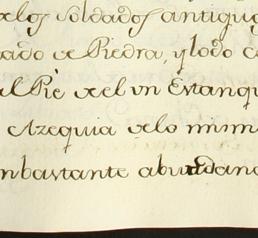 elos Soldados antiguo
ado de Piedra, y lodo c
al Pie del vn Estanqu
Azequia delo mism
nbastante abundanc